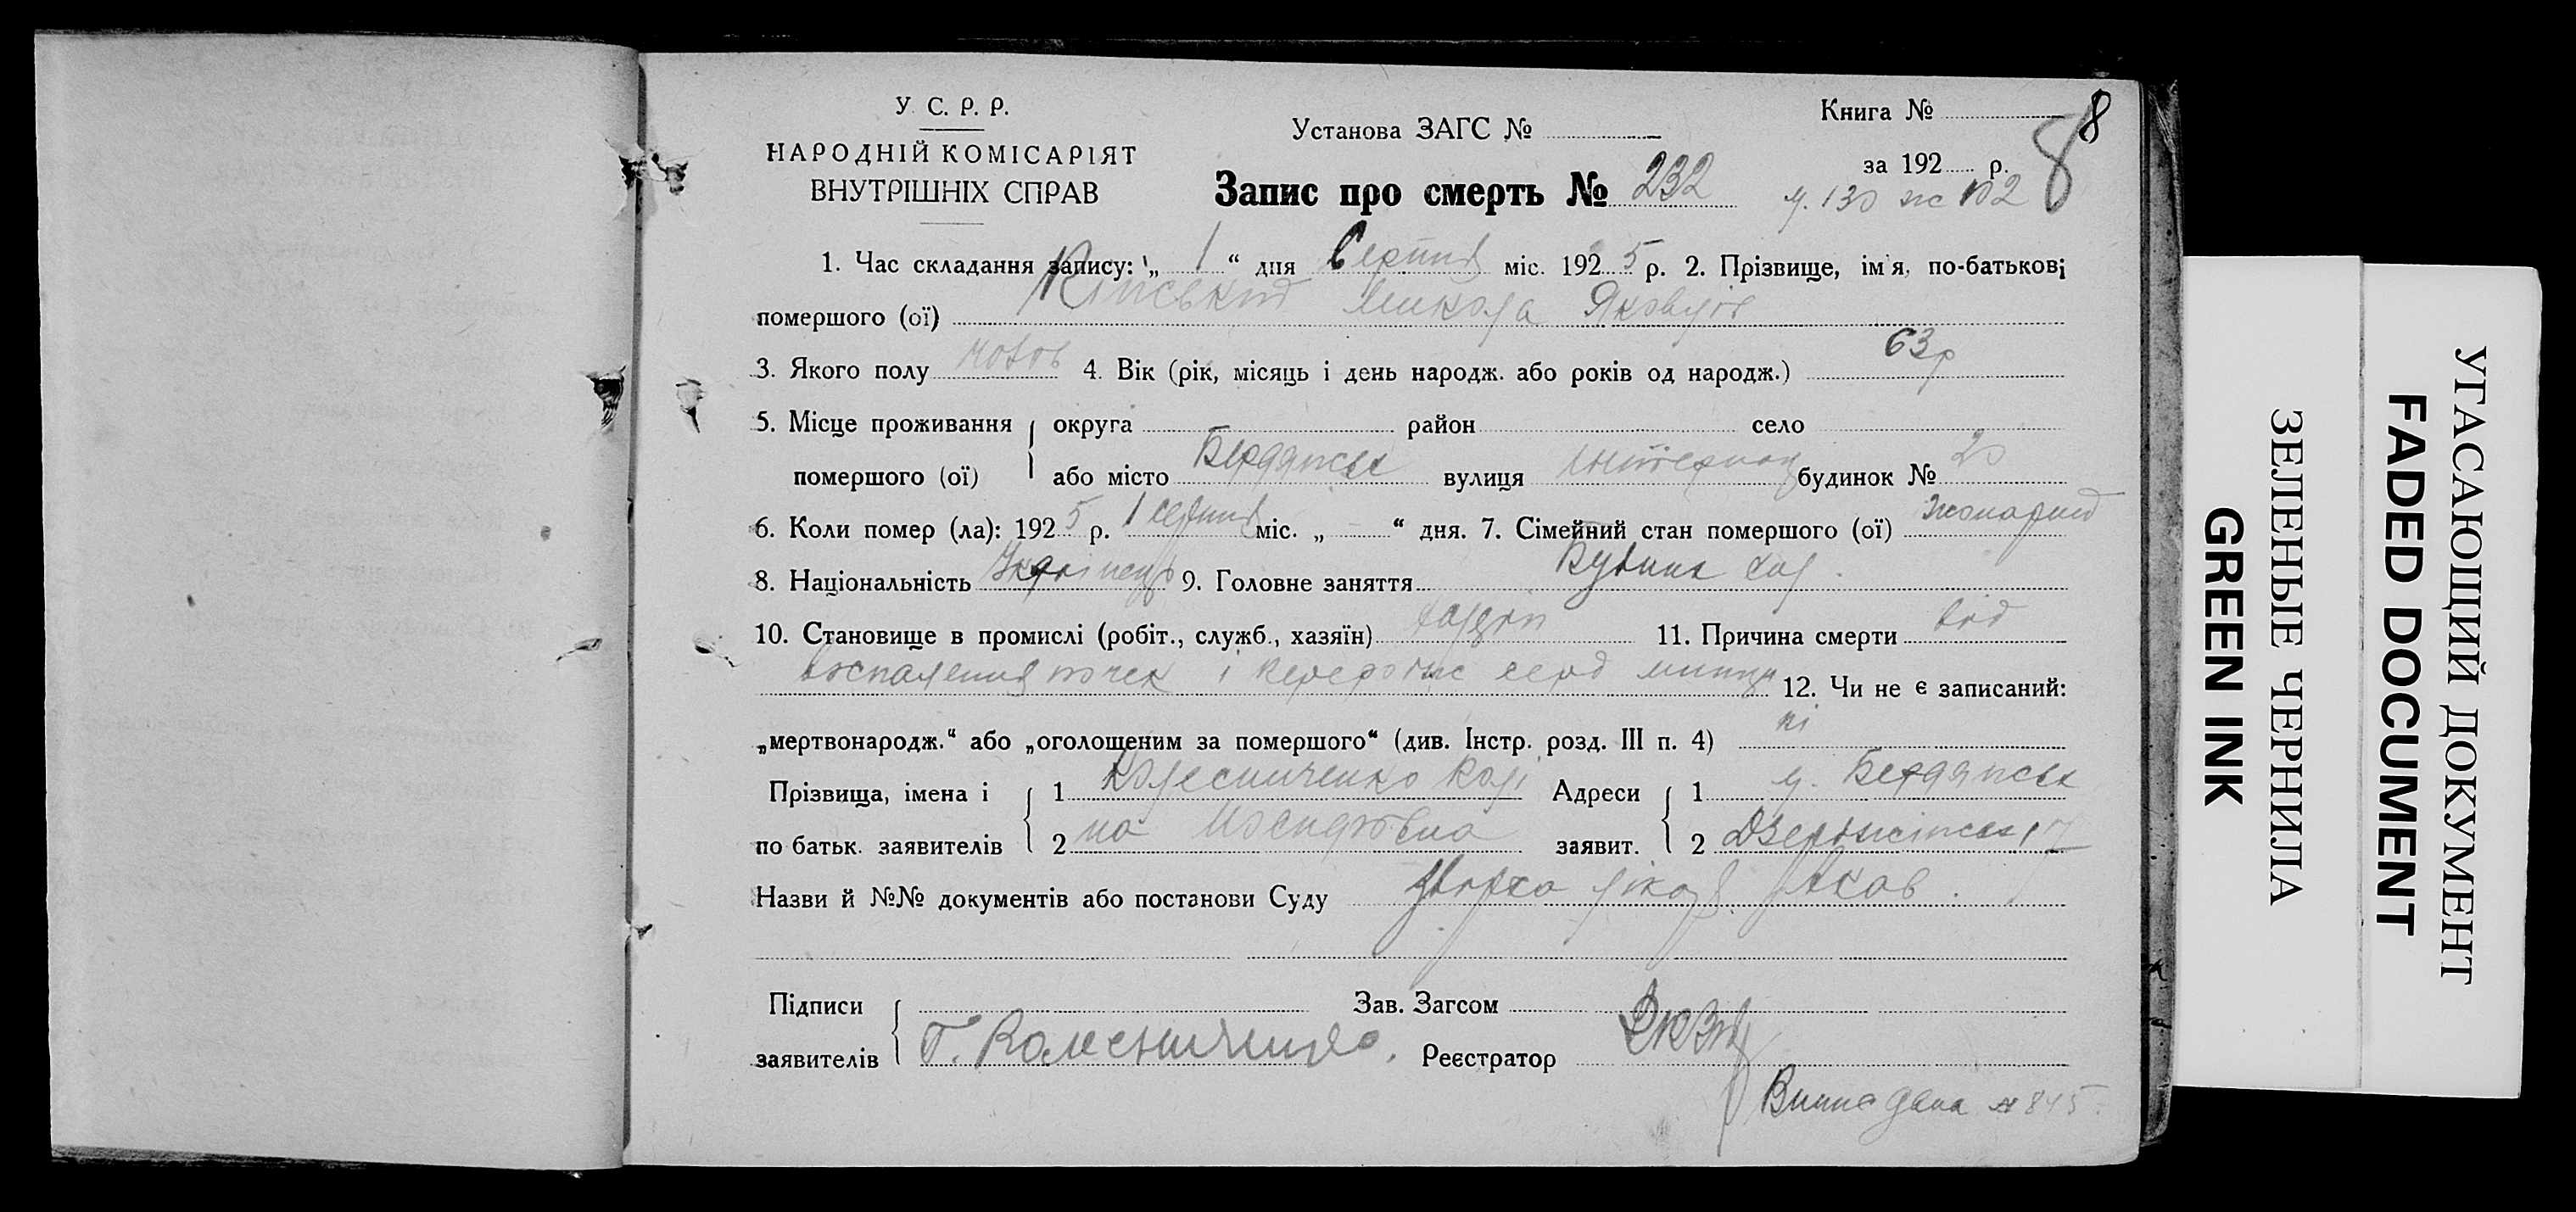 У. С. Р. Р.
НАРОДНІЙ КОМІСАРІЯТ
ВНУТРІШНІХ СПРАВ
Установа ЗАГС №
Книга № 8
за 192 р. 8
Запис про смерть № 232
ч. 130 ж 102
1. Час складання запису: „ 1 “ дня Серпня міс. 192 5 р. 2. Прізвище, ім'я, по-батькові
помершого (ої) Микола Яковлів
3. Якого полу чолов 4. Вік (рік, місяць і день народж. або років од народж.) 63 р
5. Місце проживання округа район село
помершого (ої) або місто Бердянськ вулиця Интернац будинок № 20
6. Коли помер (ла): 192 5 р. 1 серпня міс. „ “ дня. 7. Сімейний стан помершого (ої) жонатий
8. Національність Українець 9. Головне заняття
10. Становище в промислі (робіт., служб., хазяїн) хазяїн 11. Причина смерти від
воспаления почек і серд мишци 12. Чи не є записаний:
„мертвонародж.“ або „оголошеним за помершого“ (див. Інстр. розд. III п. 4) ні
Прізвища, імена і 1 Колесниченко Адреси 1 м. Бердянськ
по батьк. заявителів 2 заявит. 2 17
Назви й №№ документів або постанови Суду
Підписи Зав. Загсом
заявителів Г. Колесниченко. Реєстратор
дана № 845
УГАСАЮЩИЙ ДОКУМЕНТ
FADED DOCUMENT
ЗЕЛЕНЫЕ ЧЕРНИЛА
GREEN INK